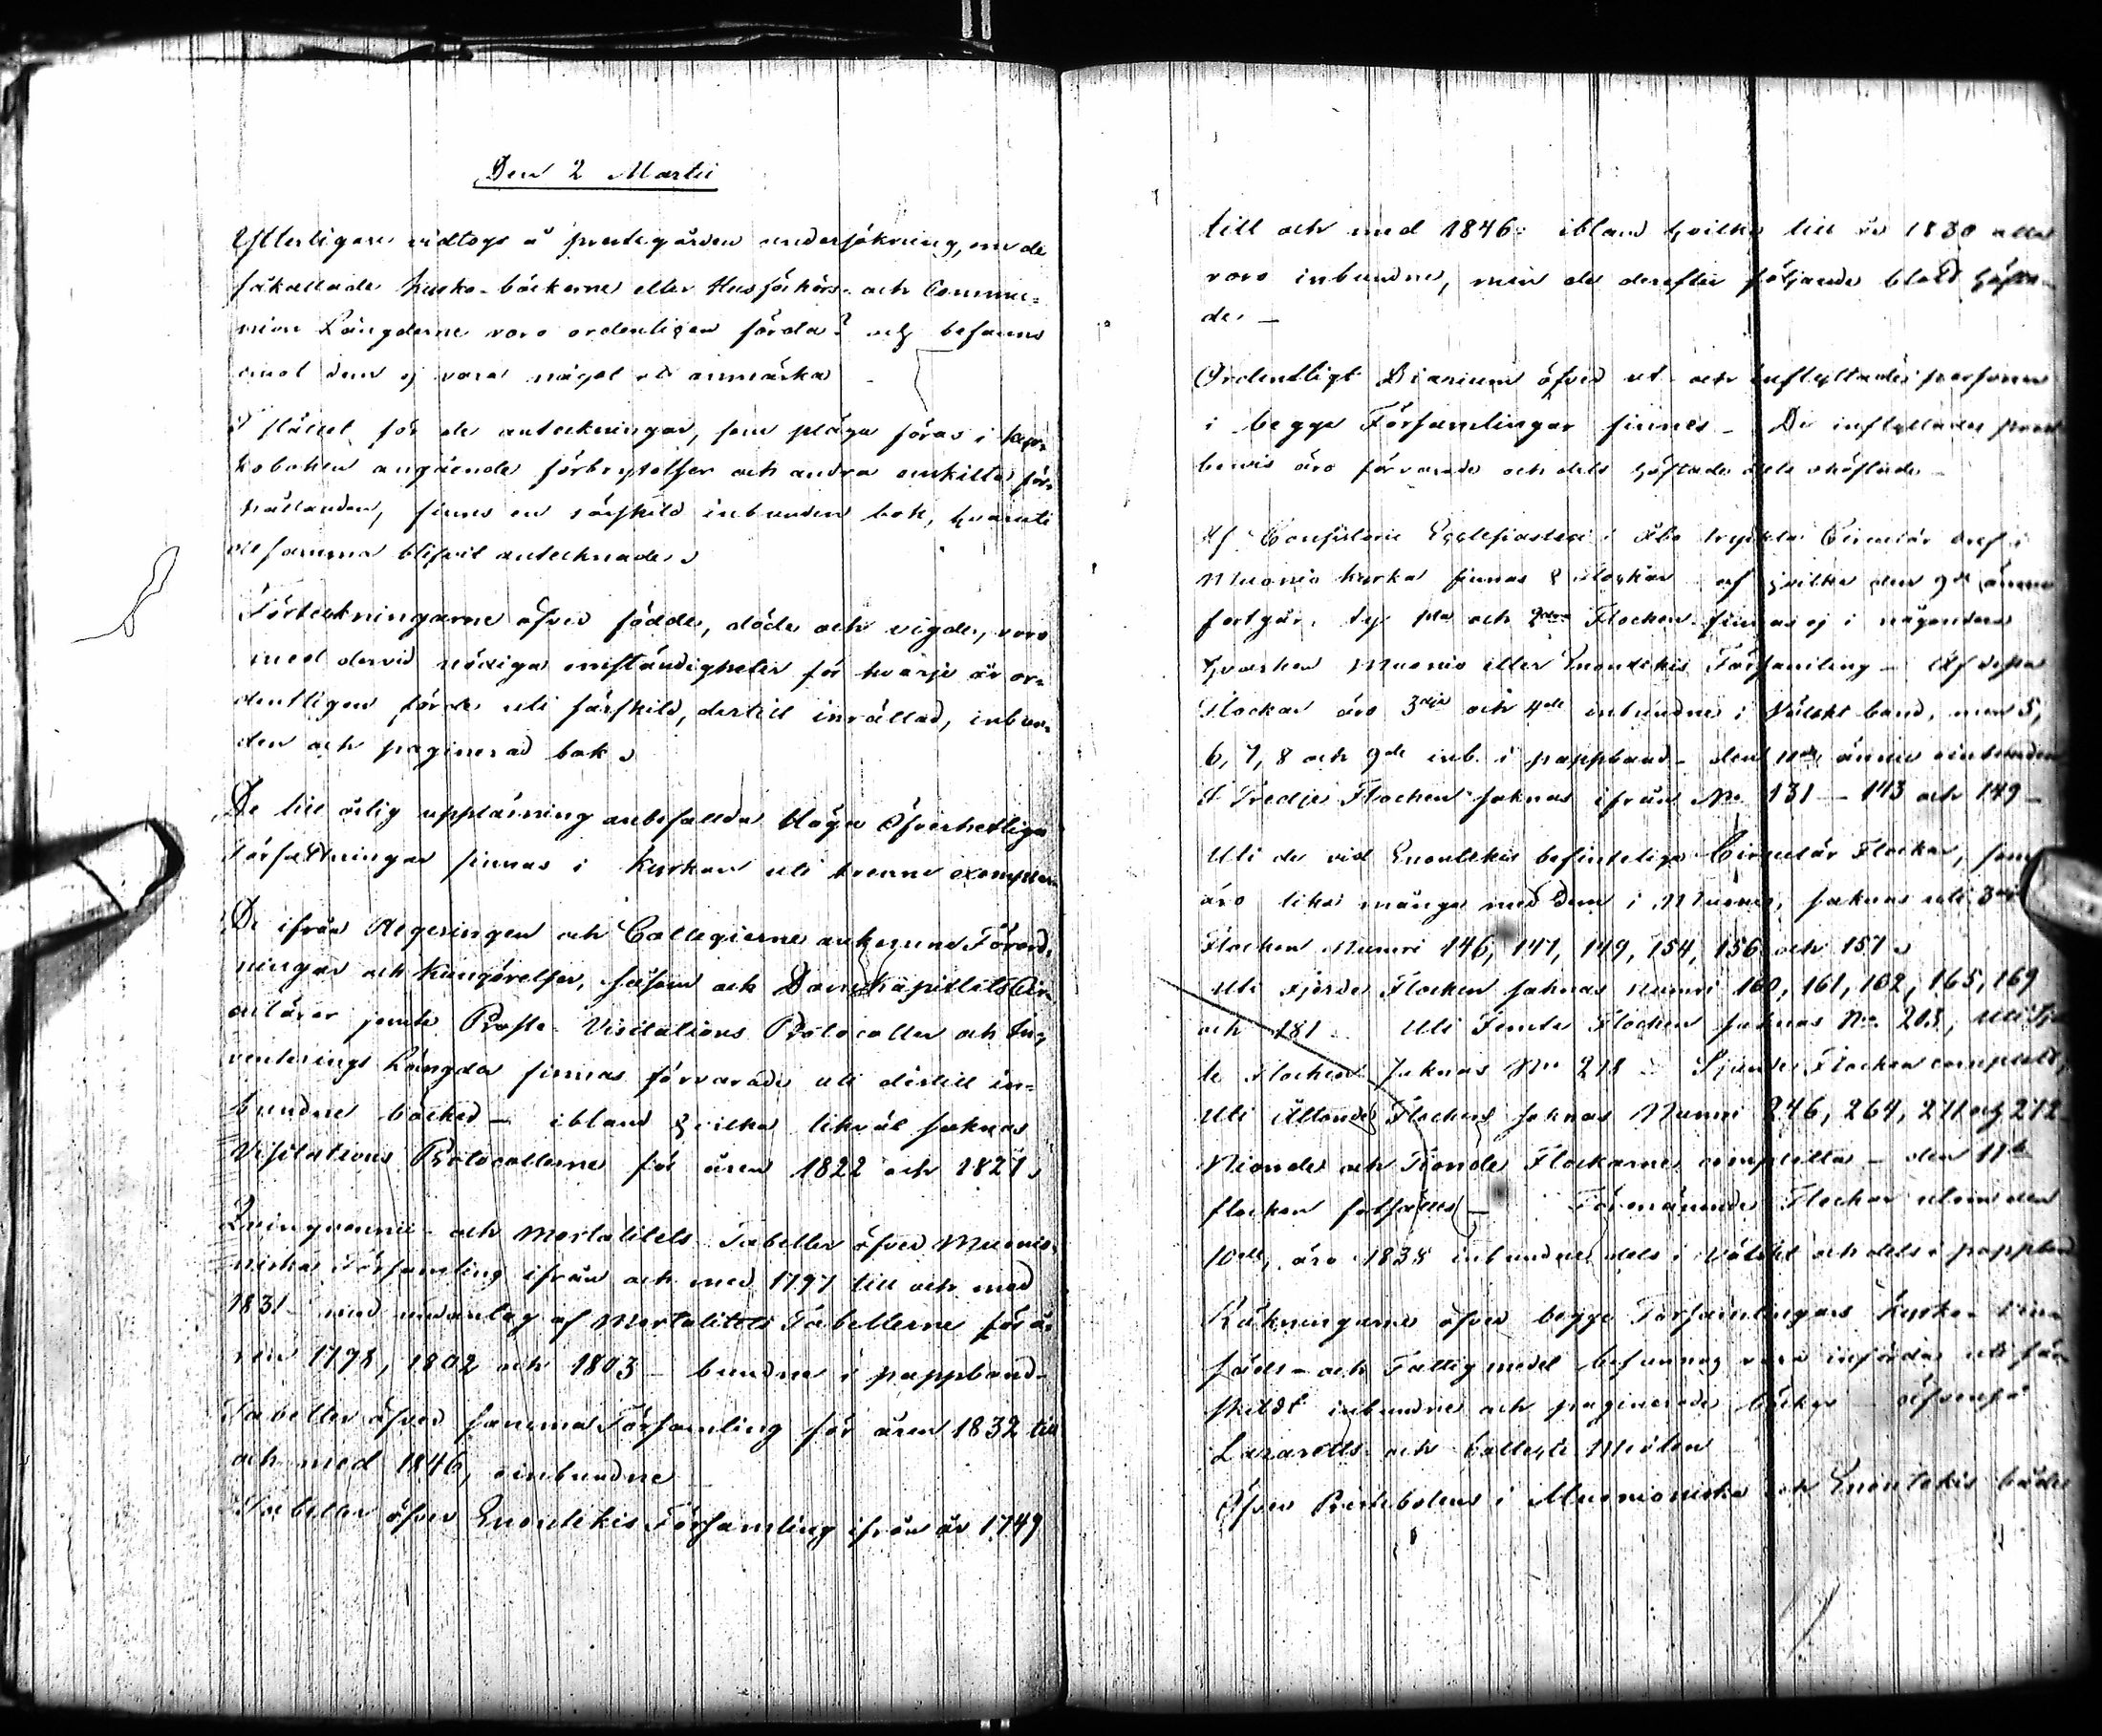 Den 2 Martii
Ytterligare vidtogs å prestegården undersökning, om de
såkallade kyrko-böckerne eller Husförhörs- och Commu-
nion Längderne voro ordentligen förda? och befanns
emot dem ej vara något att anmärka
I stället för de anteckningar, som pläga föras i kyr-
koboken angående förbrytelser och andra enskilta för-
hållanden, finnes en särskild inbunden bok, hvaruti
de samma blifvit antecknade
Förteckningarne öfver födde, döde och vigde, voro
med dervid nödiga omständigheter för hvarje år or-
dentligen förde uti särskild, dertill inrättad, inbun-
den och paginerad bok
De till årlig uppläsning anbefallda Höga Öfverhetliga
Författningar finnas i Kyrkan uti trenne exemplar
De ifrån Regeringen och Collegierne ankomne Förord-
ningar och Kungörelser, såsom och Domkapitlets Cir-
culärer jemte Proste-Visitations Protocoller och In-
venterings Längder finnas förvarade uti dertill in-
bundne böcker – ibland hvilka likväl saknas
Visitations Protocollerne för åren 1822 och 1827
Quinquennii- och Mortalitets Tabeller öfver Muonio-
niska Församling ifrån och med 1797 till och med
1831 – med undantag af Mortalitets Tabellerne för å-
ren 1798, 1802 och 1803 – bundne i pappband
Tabeller öfver samma Församling för åren 1832 till
och med 1846, oinbundne
Tabeller öfver Enontekis Församling ifrån år 1749
till och med 1846: ibland hvilka till år 1830 alla
voro inbundne, men de derefter följande blott häfta-
de –
Ordentligt Diarium öfver ut- och inflyttade personer
i begge Församlingar finnes – De inflyttades prest-
bevis äro förvarade och dels häftade dels ohäftade –
Af Consistorii Ecclesiastici i Åbo tryckta Circulär bref i
Muonio kyrka finnas 8 Flockar af hvilka den 9de ännu
fortgår, ty 1sta och 2dra Flocken finnas ej i någondera
hvarken Muonio eller Enontekis Församling – Af dessa
Flockar äro 3dje och 4de inbundne i Välskt band, men 5,
6, 7, 8 och 9de inb. i pappband – den 11de ännu oinbunden
I Tredje Flocken saknas ifrån No 131 – 143 och 149 –
Uti de vid Enontekis befinteliga Circulär Flockar, som
äro lika många med dem i Muonio, saknas uti 3dje
Flocken Numri 146, 147, 149, 154, 156 och 157
Uti Fjerde Flocken saknas numri 160, 161, 162, 165, 169
och 181. Uti Femte Flocken saknas No 203, Uti Sjet-
te Flocken saknas No 218 – Sjunde Flocken complett,
Uti Åttonde Flocken saknas Numri 246, 264, 271 och 272
Nionde och Tionde Flockarne completta – den 11te
flocken fortsättes – Förenämnde Flockar utom den
10de, äro 1838 inbundne dels i Välskt och dels i pappband
Räkningarne öfver begge Församlingars Kyrko-
och Fattig medel befunnos vara införda uti sär-
skildt inbundne och paginerade böcker – äfvenså
Lazaretts och Collegti Medlen
Öfver Prestebolens i Muonioniska och Enontekis både